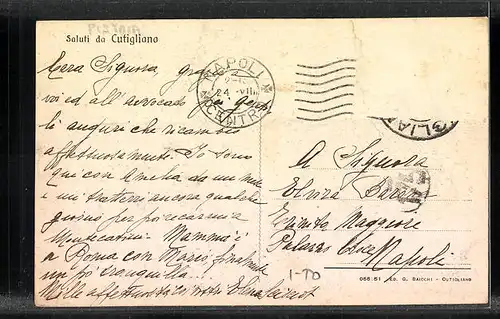 PISTOIA
Saluti da Cutigliano
Cara Signora, grazie a
voi ed all'avvocato dei genti
li auguri che ricambio
affettuosamente. Io sono
qui con Amelia da un mese
e mi tratterrò ancora qualche
giorno per poi recarmi a
Montecatini. Mamma è
a Roma con Mario, finalmente
un pò tranquilla...
Mille affettuosità
NAPOLI
24 · VIII
CENTRO
GLIA
A Signora
Elvira
Trinità Maggiore
Palazzo
Napoli
1-TD
ED. G. BAICCHI - CUTIGLIANO